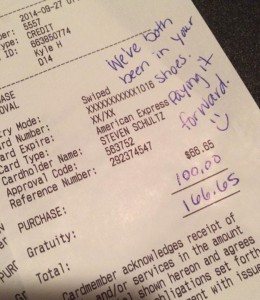 2014-09-27
5557
CREDIT
ID: 663850774
Kyle H
D14
We've both
been in your
shoes.
Paying it
forward.
Swiped
XXXXXXXXXXXX1016
XX/XX
American Express
Card Type:
Cardholder Name: STEVEN SCHULTZ
Approval Code: 563752
Reference Number: 292374547
PURCHASE: $66.65
Gratuity: 100.00
Total: 166.65
Cardmember acknowledges receipt of
and/or services in the amount
shown hereon and agrees
obligations set forth
with